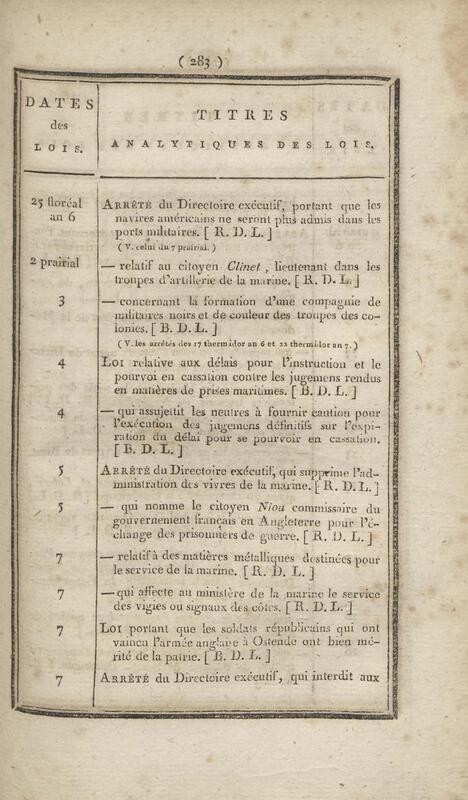 ( 283 )
DATES
des
LOIS.
TITRES
ANALYTIQUES DES LOIS.
25 floréal
an 6
ARRÊTÉ du Directoire exécutif, portant que les
navires américains ne seront plus admis dans les
ports militaires. [ R. D. L. ]
( V. celui du 7 prairial. )
2 prairial
— relatif au citoyen Clinet, lieutenant dans les
troupes d'artillerie de la marine. [ R. D. L. ]
3
— concernant la formation d'une compagnie de
militaires noirs et de couleur des troupes des co-
lonies. [ B. D. L. ]
( V. les arrêtés des 17 thermidor an 6 et 22 thermidor an 7. )
4
LOI relative aux délais pour l'instruction et le
pourvoi en cassation contre les jugemens rendus
en matières de prises maritimes. [ B. D. L. ]
4
— qui assujettit les neutres à fournir caution pour
l'exécution des jugemens définitifs sur l'expi-
ration du délai pour se pourvoir en cassation.
[ B. D. L. ]
5
ARRÊTÉ du Directoire exécutif, qui supprime l'ad-
ministration des vivres de la marine. [ R. D. L. ]
5
— qui nomme le citoyen Niou commissaire du
gouvernement français en Angleterre pour l'é-
change des prisonniers de guerre. [ R. D. L. ]
7
— relatif à des matières métalliques destinées pour
le service de la marine. [ R. D. L. ]
7
— qui affecte au ministère de la marine le service
des vigies ou signaux des côtes. [ R. D. L. ]
7
LOI portant que les soldats républicains qui ont
vaincu l'armée anglaise à Ostende ont bien mé-
rité de la patrie. [ B. D. L. ]
7
ARRÊTÉ du Directoire exécutif, qui interdit aux